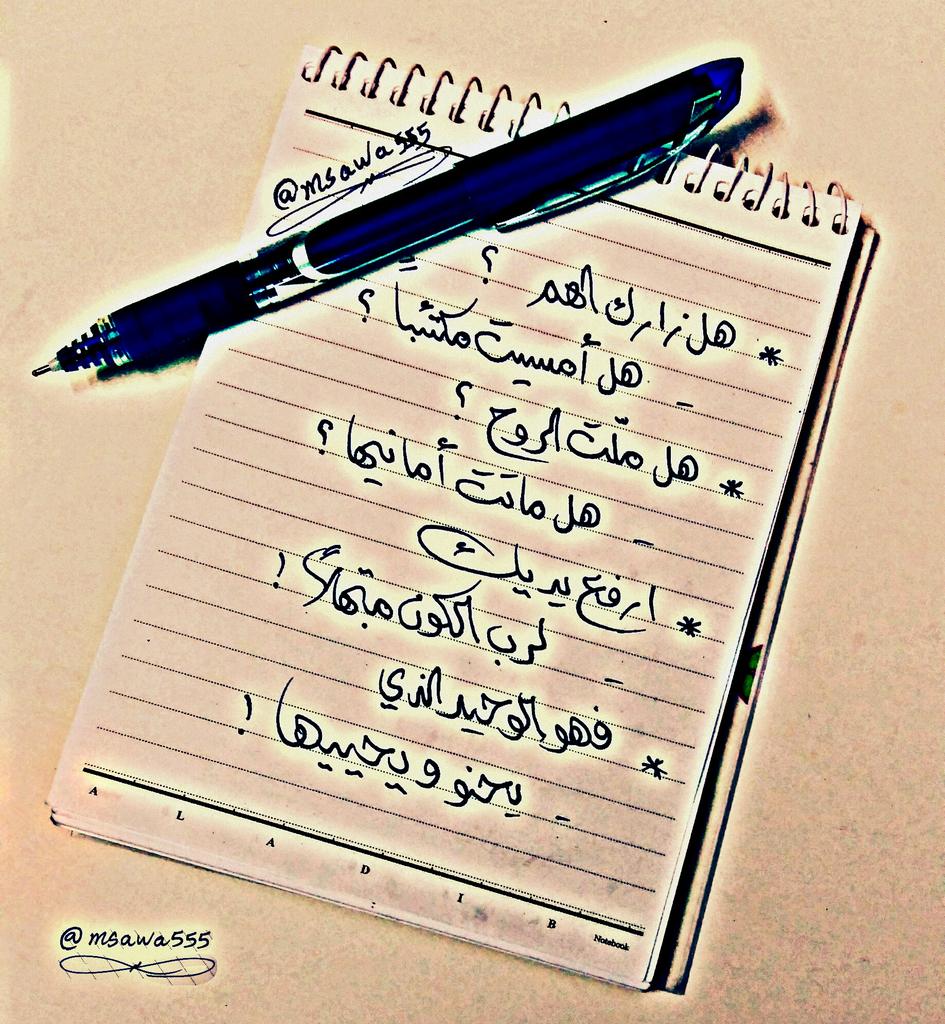 @msawa555
* هل زارك الهم ؟
_ هل أمسيت مكتئباً ؟
* هل ملّت الروح ؟
_ هل ماتت أمانيها ؟
* ارفع يديك
_ لرب الكون مبتهلاً !
* فهو الوحيد الذي
_ يحنو و يحييها !
A L A D I B
Notebook
@msawa555